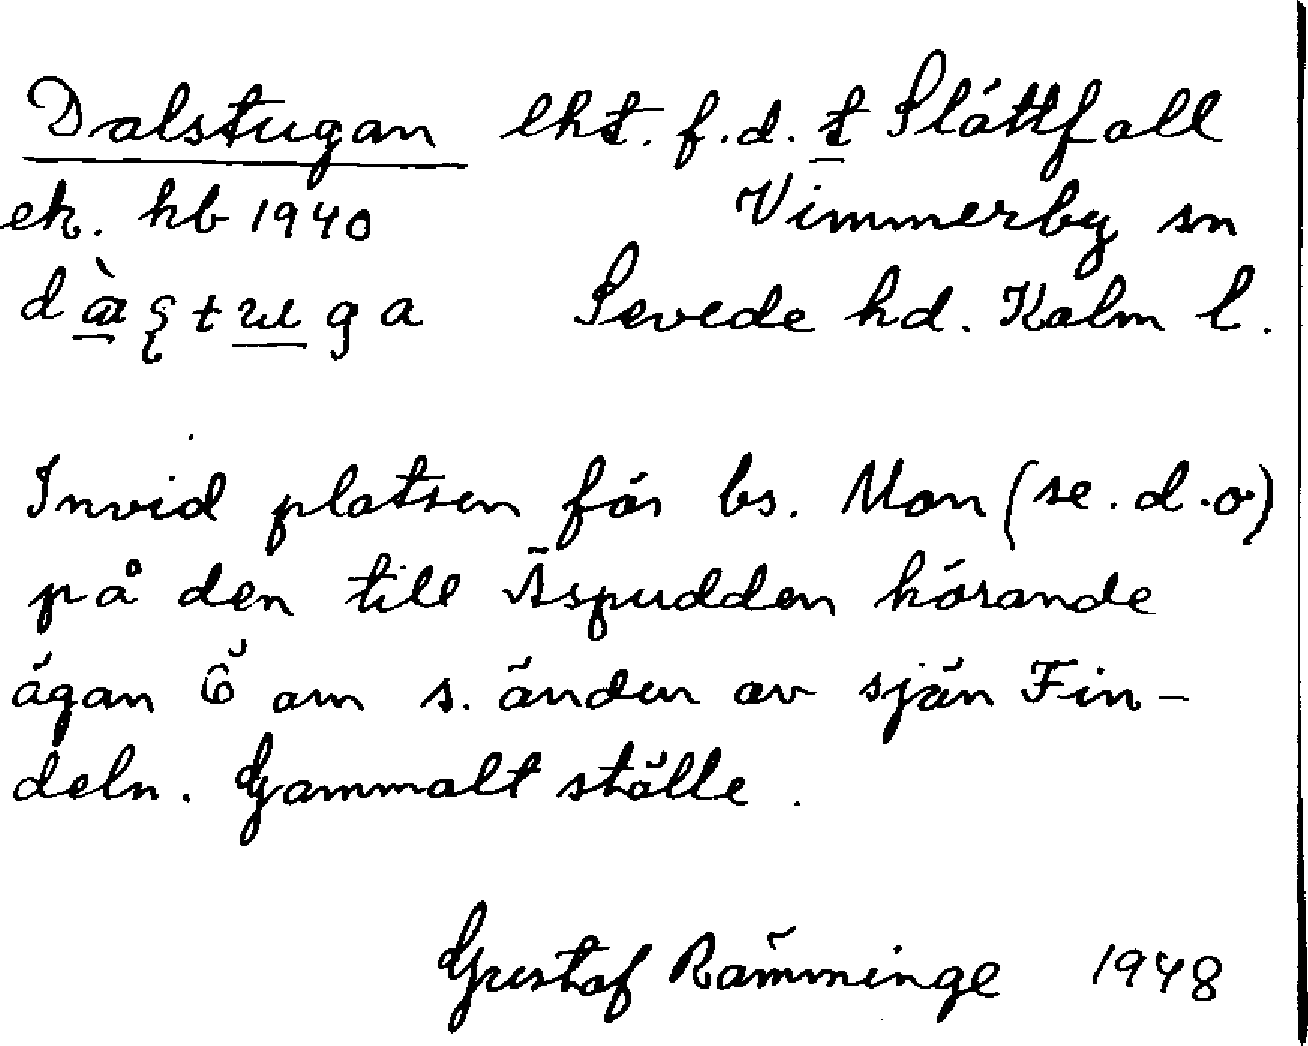 Dalstugan lht. f.d. t Slättfall
ek. hb 1940 Vimmerby sn
dàʂtuga Sevede hd. Kalm l.
Invid platsen för bs. Mon (se. d.o)
på den till Äspudden hörande
ägan Ö om s. änden av sjön Fin-
deln. Gammalt ställe.
Gustaf Ramminge 1948